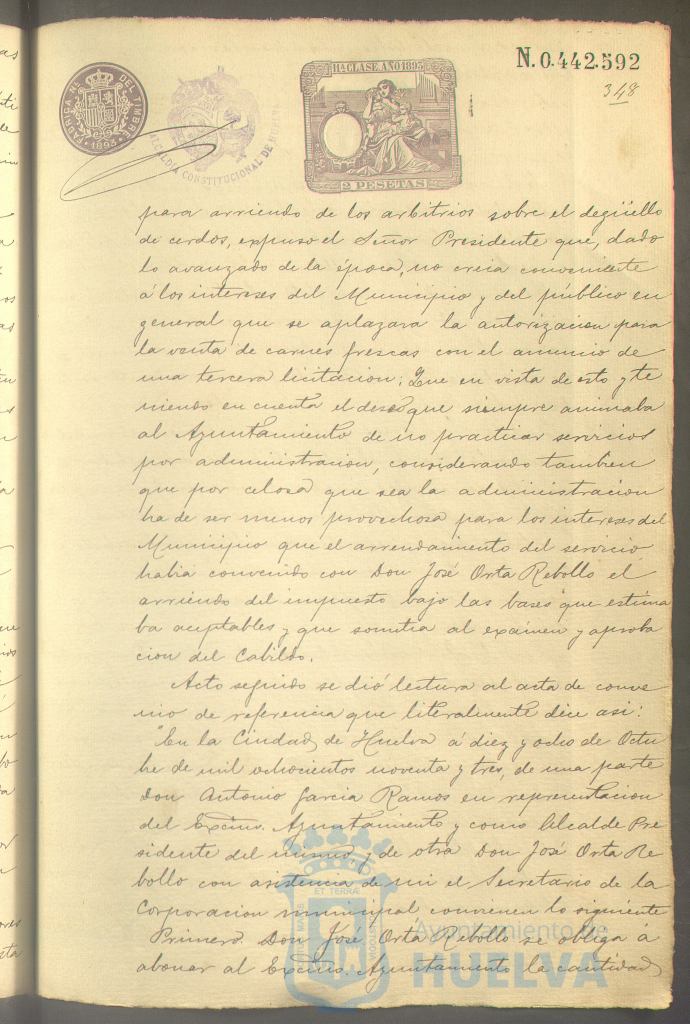 N. 0.442.592
348
FABRICA NL. DEL TIMBRE
1893
ALCALDÍA CONSTITUCIONAL DE
11ª CLASE AÑO 1893
2 PESETAS
para arriendo de los arbitrios sobre el degüello
de cerdos, expuso el Señor Presidente que, dado
lo avanzado de la época, no creia conveniente
á los intereses del Municipio y del público en
general que se aplazara la autorizacion para
la venta de carnes frescas con el anuncio de
una tercera licitacion; Que en vista de esto y te
niendo en cuenta el deseo que siempre animaba
al Ayuntamiento de no practicar servicios
por administracion, considerando tambien
que por celosa que sea la administracion
ha de ser menos provechosa para los intereses del
Municipio que el arrendamiento del servicio
habia convenido con Don José Orta Rebollo el
arriendo del impuesto bajo las bases que estima
ba aceptables y que sometia al exámen y aproba
cion del Cabildo.
Acto seguido se dió lectura al acta de conve
nio de referencia que literalmente dice asi:
"En la Ciudad de Huelva á diez y ocho de Octu
bre de mil ochocientos noventa y tres, de una parte
Don Antonio Garcia Ramos en representacion
del Excmo. Ayuntamiento y como Alcalde Pre
sidente del mismo, y de otra Don José Orta Re
bollo con asistencia de mi el Secretario de la
Corporacion municipal, convienen lo siguiente
Primero. Don José Orta Rebollo se obliga á
abonar al Excmo. Ayuntamiento la cantidad
ET TERRAE
Ayuntamiento de
HUELVA